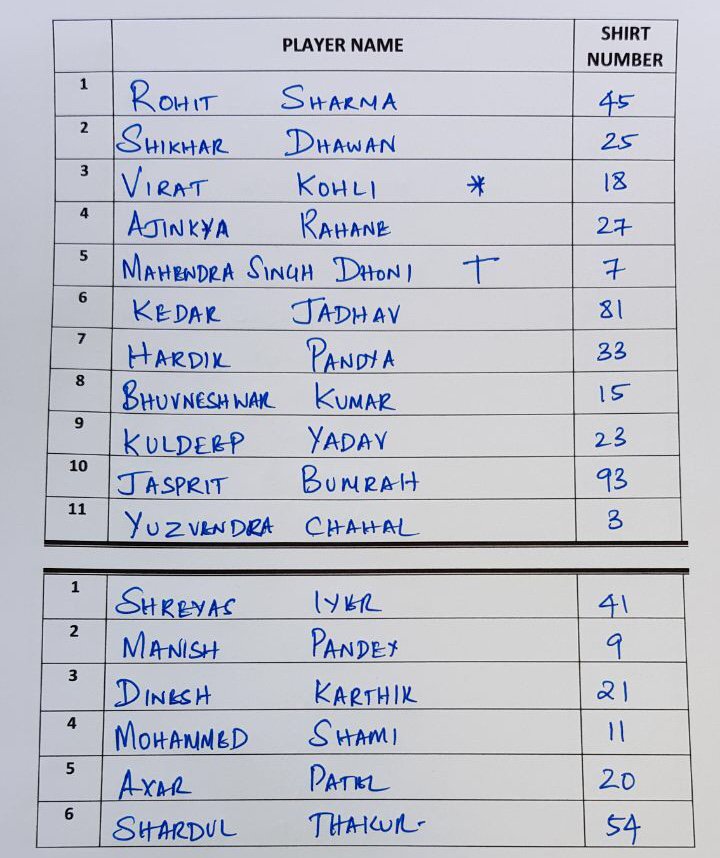 PLAYER NAME SHIRT NUMBER
1 ROHIT SHARMA 45
2 SHIKHAR DHAWAN 25
3 VIRAT KOHLI * 18
4 AJINKYA RAHANE 27
5 MAHENDRA SINGH DHONI † 7
6 KEDAR JADHAV 81
7 HARDIK PANDYA 33
8 BHUVNESHWAR KUMAR 15
9 KULDEEP YADAV 23
10 JASPRIT BUMRAH 93
11 YUZVENDRA CHAHAL 3
1 SHREYAS IYER 41
2 MANISH PANDEY 9
3 DINESH KARTHIK 21
4 MOHAMMED SHAMI 11
5 AXAR PATEL 20
6 SHARDUL THAKUR 54